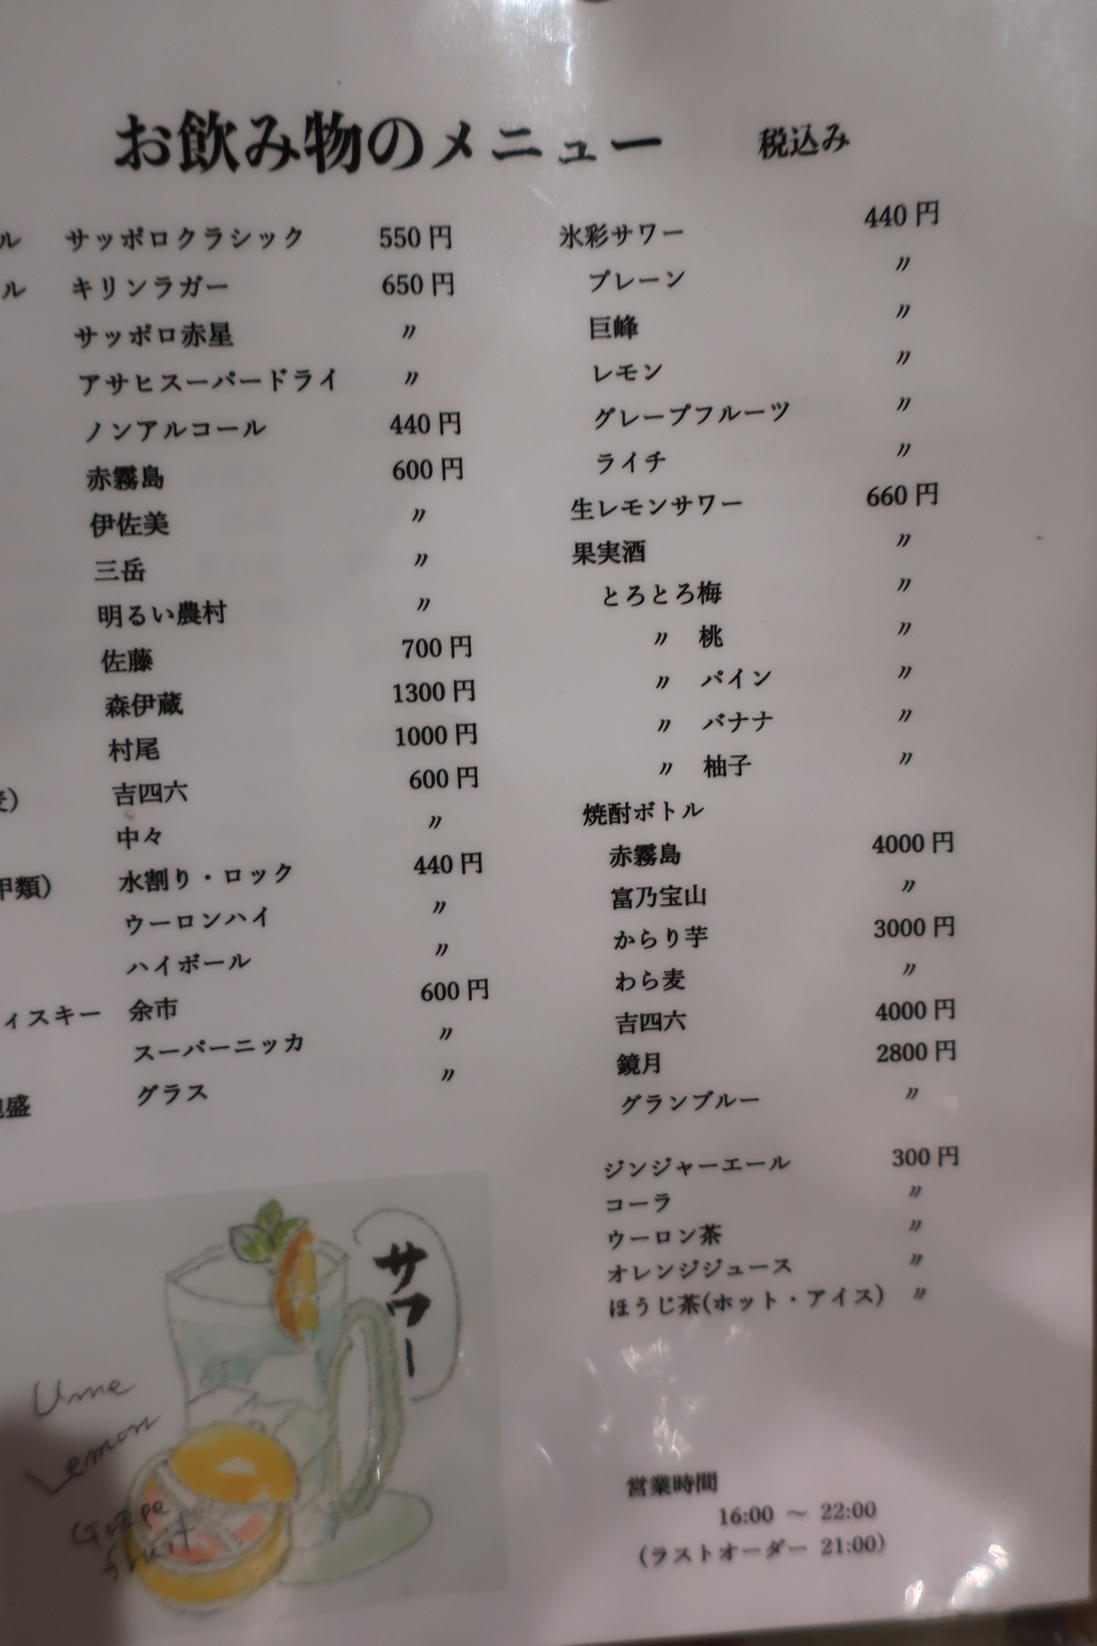 お飲み物のメニュー 税込み
ル サッポロクラシック 550円
ル キリンラガー 650円
サッポロ赤星 〃
アサヒスーパードライ 〃
ノンアルコール 440円
赤霧島 600円
伊佐美 〃
三岳 〃
明るい農村 〃
佐藤 700円
森伊蔵 1300円
村尾 1000円
麦） 吉四六 600円
中々 〃
甲類） 水割り・ロック 440円
ウーロンハイ 〃
ハイボール 〃
ィスキー 余市 600円
スーパーニッカ 〃
盛 グラス 〃
氷彩サワー 440円
プレーン 〃
巨峰 〃
レモン 〃
グレープフルーツ 〃
ライチ 〃
生レモンサワー 660円
果実酒 〃
とろとろ梅 〃
〃 桃 〃
〃 パイン 〃
〃 バナナ 〃
〃 柚子 〃
焼酎ボトル
赤霧島 4000円
富乃宝山 〃
からり芋 3000円
わら麦 〃
吉四六 4000円
鏡月 2800円
グランブルー 〃
ジンジャーエール 300円
コーラ 〃
ウーロン茶 〃
オレンジジュース 〃
ほうじ茶(ホット・アイス) 〃
サワー
Ume
Lemon
Grape
fruit
営業時間
16:00 ～ 22:00
（ラストオーダー 21:00）